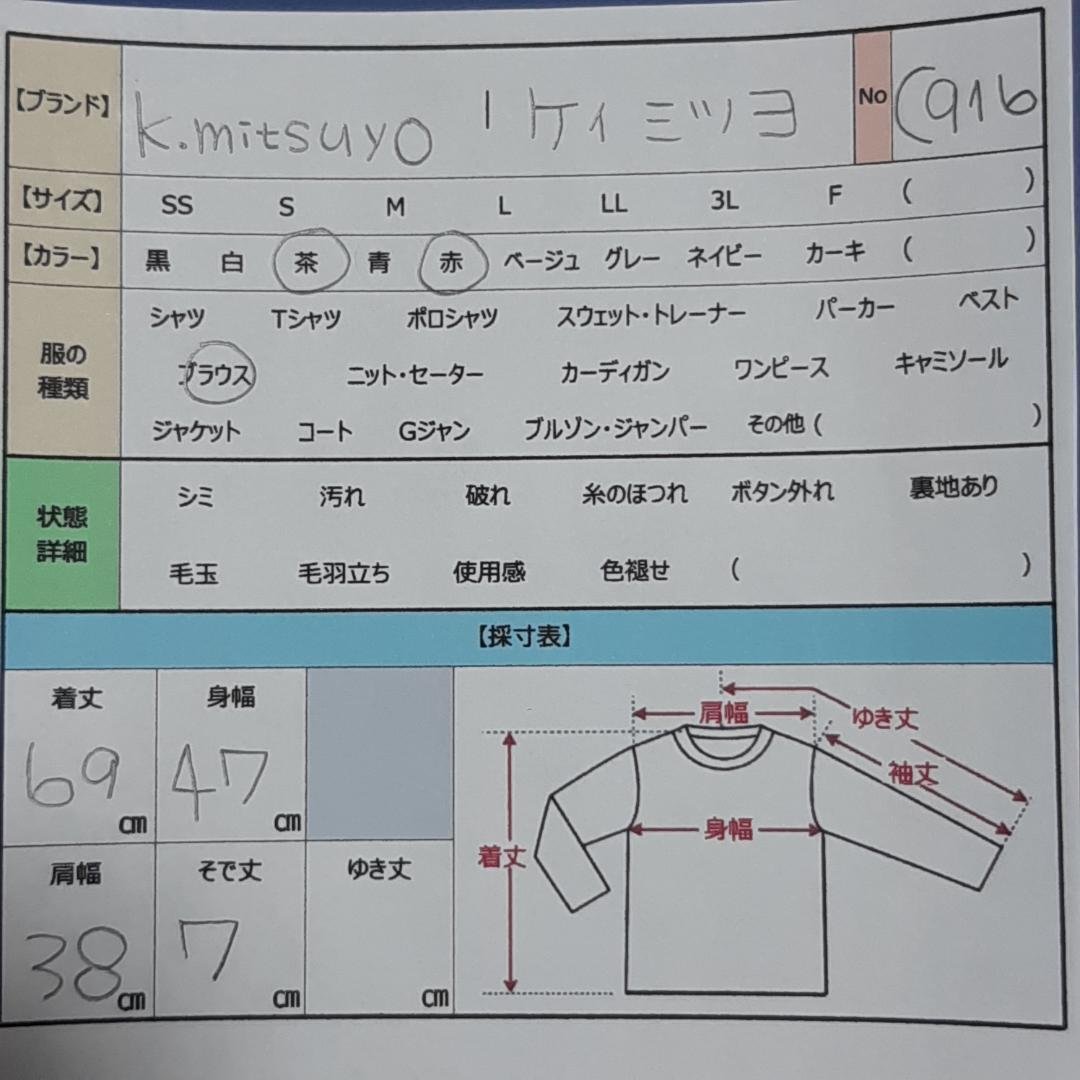 【ブランド】 K.mitsuyo ｜ケイ ミツヨ No (916
【サイズ】 SS S M L LL 3L F ( )
【カラー】 黒 白 茶 青 赤 ベージュ グレー ネイビー カーキ ( )
服の種類
シャツ Tシャツ ポロシャツ スウェット・トレーナー パーカー ベスト
ブラウス ニット・セーター カーディガン ワンピース キャミソール
ジャケット コート Gジャン ブルゾン・ジャンパー その他 ( )
状態詳細
シミ 汚れ 破れ 糸のほつれ ボタン外れ 裏地あり
毛玉 毛羽立ち 使用感 色褪せ ( )
【採寸表】
着丈 身幅
69 cm 47 cm
肩幅 そで丈 ゆき丈
38 cm 7 cm cm
肩幅 ゆき丈
袖丈
身幅
着丈